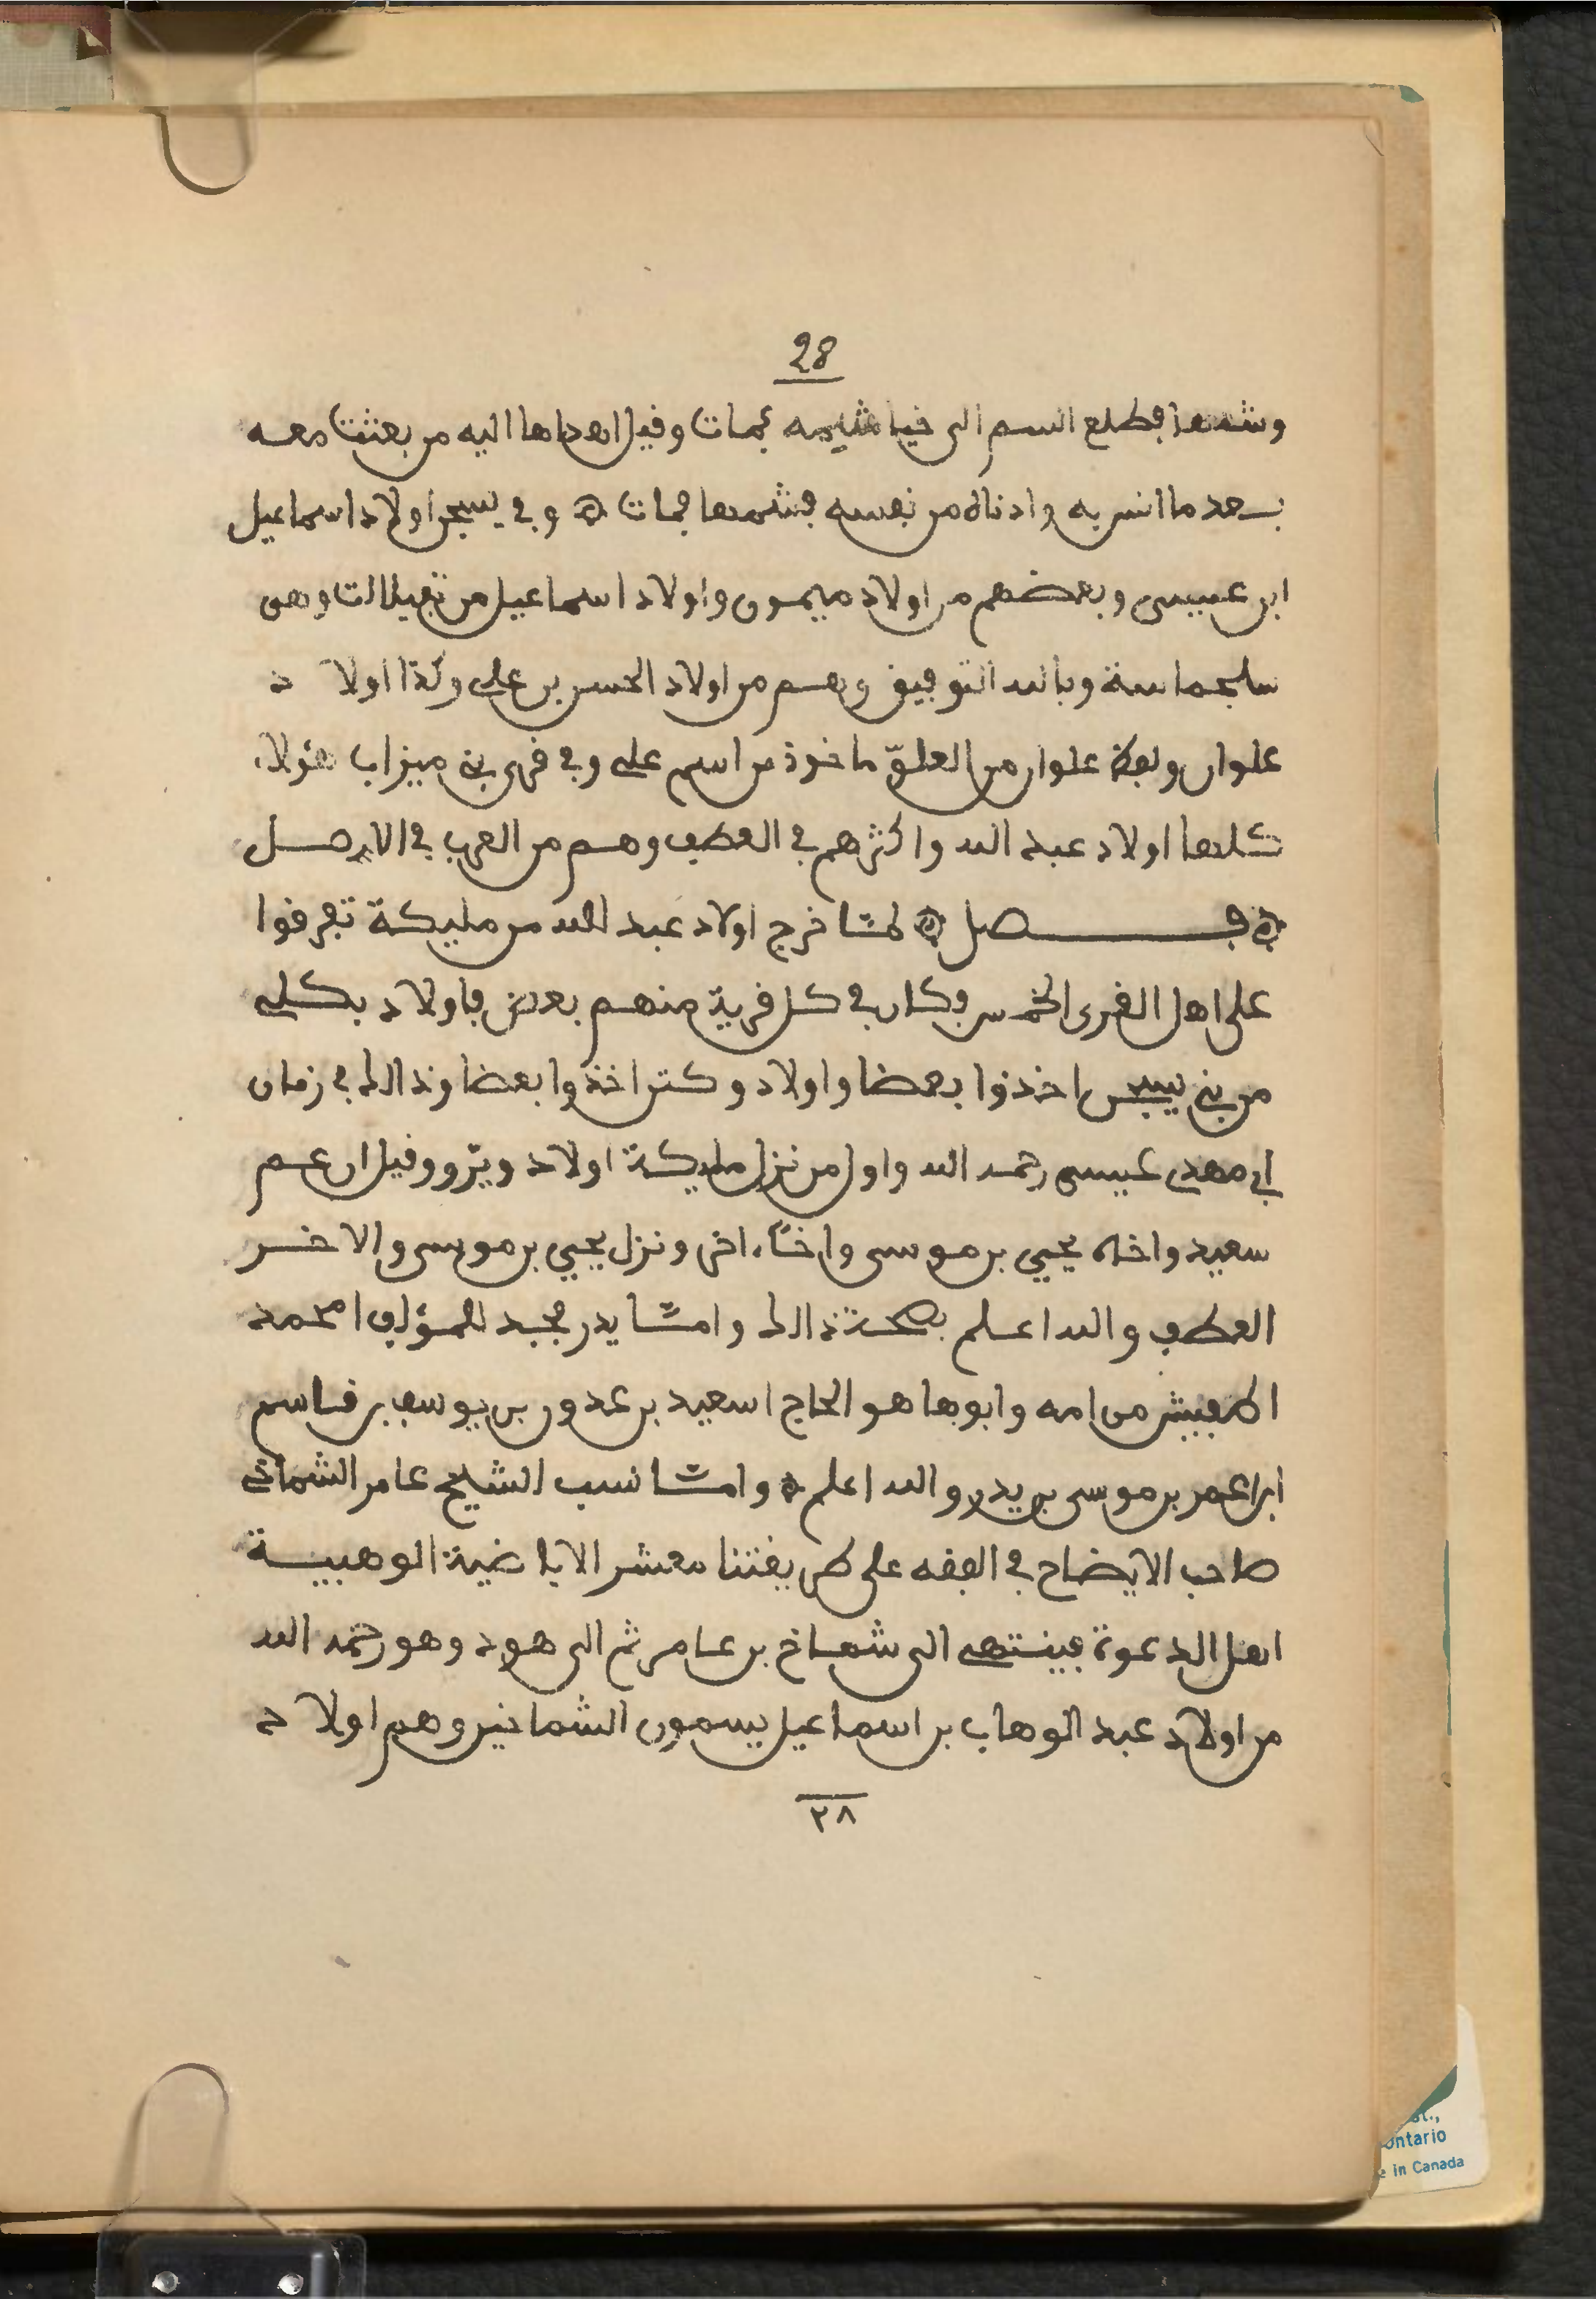 28
وشمها فطلع السم الى خياشيمه فمات وقيل اهداها اليه من بعثت معه
بعد ما انس به وادناه من نفسه فشمها فمات ۞ وفي يسجن اولاد اسماعيل
ابن عيسى وبعضهم من اولاد ميمون واولاد اسماعيل من تفيلالت وهى
سلجماسة وبالله التوفيق وهم من اولاد الحسن بن علي وكذا اولا د
علوان ولفظ علوان من العلوّ ماخوذ من اسم علي وفي قرى بني ميزاب هؤلاء
كلها اولاد عبد الله واكثرهم في العطف وهم من العرب في الاصل
۞ فـــصل ۞ لمّا خرج اولاد عبد الله من مليكة تفرقوا
على اهل القرى الخمس فكان في كل قرية منهم بعض فاولاد بكلي
من بني يسجن اخذوا بعضا واولاد وكتر اخذوا بعضا وذالك في زمان
ابي مهدي عيسى رحمه الله واول من نزل مليكة اولاد ويرّو وقيل ان عم
سعيد واخاه يحيى بن موسى واخًاء اخر ونزل يحيى بن موسى والاخر
العطف والله اعلم بصحة ذالك وامّا يدر فجد للمؤلف امحمد
اطفيش من امه وابوها هو الحاج اسعيد بن عدون بن يوسف بن قاسم
ابن عمر بن موسى بن يدر والله اعلم ۞ وامّا نسب الشيخ عامر الشماخي
صاحب الايضاح في الفقه على طريقتنا معشر الاباضية الوهبية
اهل الدعوة فينتهي الى شماخ بن عامر ثم الى هود وهو رحمه الله
من اولاد عبد الوهاب بن اسماعيل يسمون الشماخين وهم اولا د
٢٨
ontario
in Canada